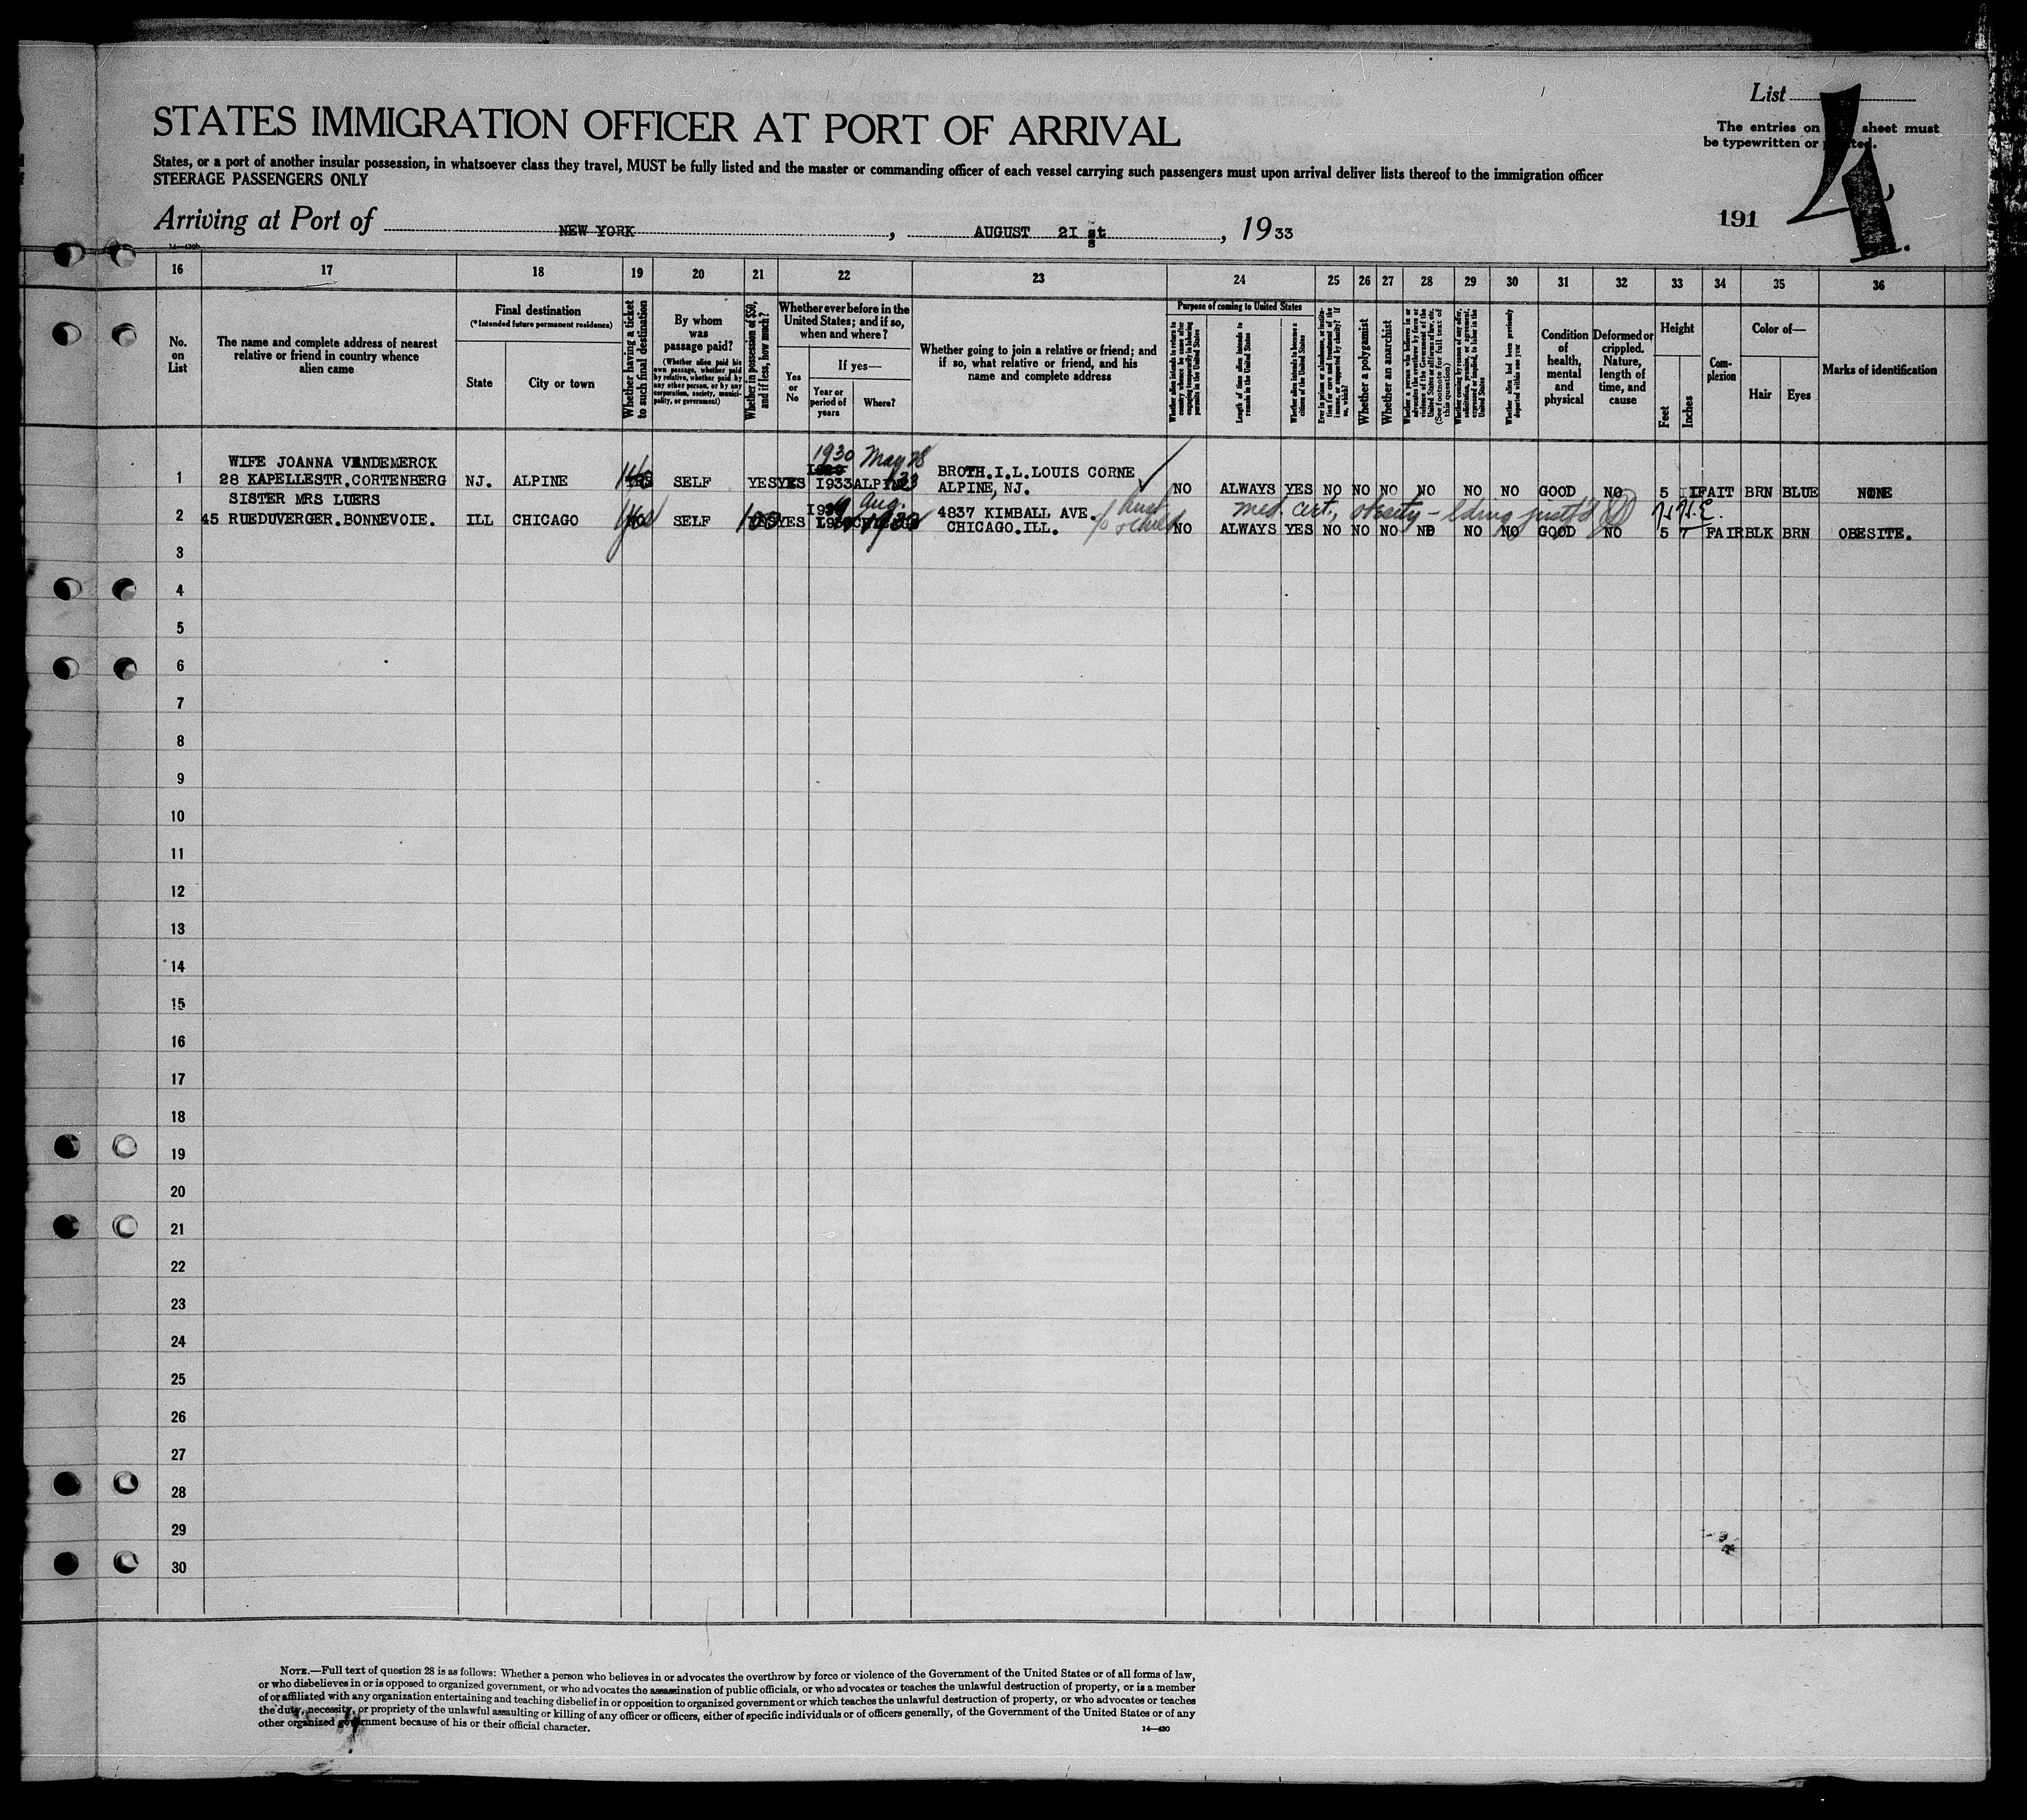 List
4.
The entries on sheet must
be typewritten or
STATES IMMIGRATION OFFICER AT PORT OF ARRIVAL
States, or a port of another insular possession, in whatsoever class they travel, MUST be fully listed and the master or commanding officer of each vessel carrying such passengers must upon arrival deliver lists thereof to the immigration officer
STEERAGE PASSENGERS ONLY
Arriving at Port of NEW YORK, AUGUST 2I st, 1933
191
14—430b
16 17 18 19 20 21 22 23 24 25 26 27 28 29 30 31 32 33 34 35 36
No. on List
The name and complete address of nearest relative or friend in country whence alien came
Final destination
(*Intended future permanent residence)
State
City or town
Whether having a ticket to such final destination
By whom was passage paid?
(Whether alien paid his own passage, whether paid by relative, whether paid by any other person, or by any corporation, society, municipality, or government)
Whether in possession of $50, and if less, how much?
Whether ever before in the United States; and if so, when and where?
Yes or No
If yes—
Year or period of years
Where?
Whether going to join a relative or friend; and if so, what relative or friend, and his name and complete address
Purpose of coming to United States
Whether alien intends to return to country whence he came after engaging temporarily in laboring pursuits in the United States
Length of time alien intends to remain in the United States
Whether alien intends to become a citizen of the United States
Whether a polygamist
Whether an anarchist
(See footnote for full text of this question)
Whether alien had been previously deported within one year
Condition of health, mental and physical
Deformed or crippled. Nature, length of time, and cause
Height
Feet
Inches
Complexion
Color of—
Hair
Eyes
Marks of identification
1930 May 28
WIFE JOANNA VANDEMERCK
BROTH.I.L.LOUIS CORNE
1 28 KAPELLESTR.CORTENBERG NJ. ALPINE YES SELF YES YES I933 ALPINE ALPINE, NJ. NO ALWAYS YES NO NO NO NO NO NO GOOD NO 5 II FAIT BRN BLUE NONE
SISTER MRS LUERS
Aug.
4837 KIMBALL AVE.
med. cert., obesity
2 45 RUEDUVERGER.BONNEVOIE. ILL CHICAGO SELF YES CHICAGO.ILL. NO ALWAYS YES NO NO NO NO NO NO GOOD NO 5 7 FAIR BLK BRN OBESITE.
3
4
5
6
7
8
9
10
11
12
13
14
15
16
17
18
19
20
21
22
23
24
25
26
27
28
29
30
NOTE.—Full text of question 28 is as follows: Whether a person who believes in or advocates the overthrow by force or violence of the Government of the United States or of all forms of law,
or who disbelieves in or is opposed to organized government, or who advocates the assassination of public officials, or who advocates or teaches the unlawful destruction of property, or is a member
of or affiliated with any organization entertaining and teaching disbelief in or opposition to organized government or which teaches the unlawful destruction of property, or who advocates or teaches
the duty, necessity, or propriety of the unlawful assaulting or killing of any officer or officers, either of specific individuals or of officers generally, of the Government of the United States or of any
other organized government because of his or their official character.
14—430